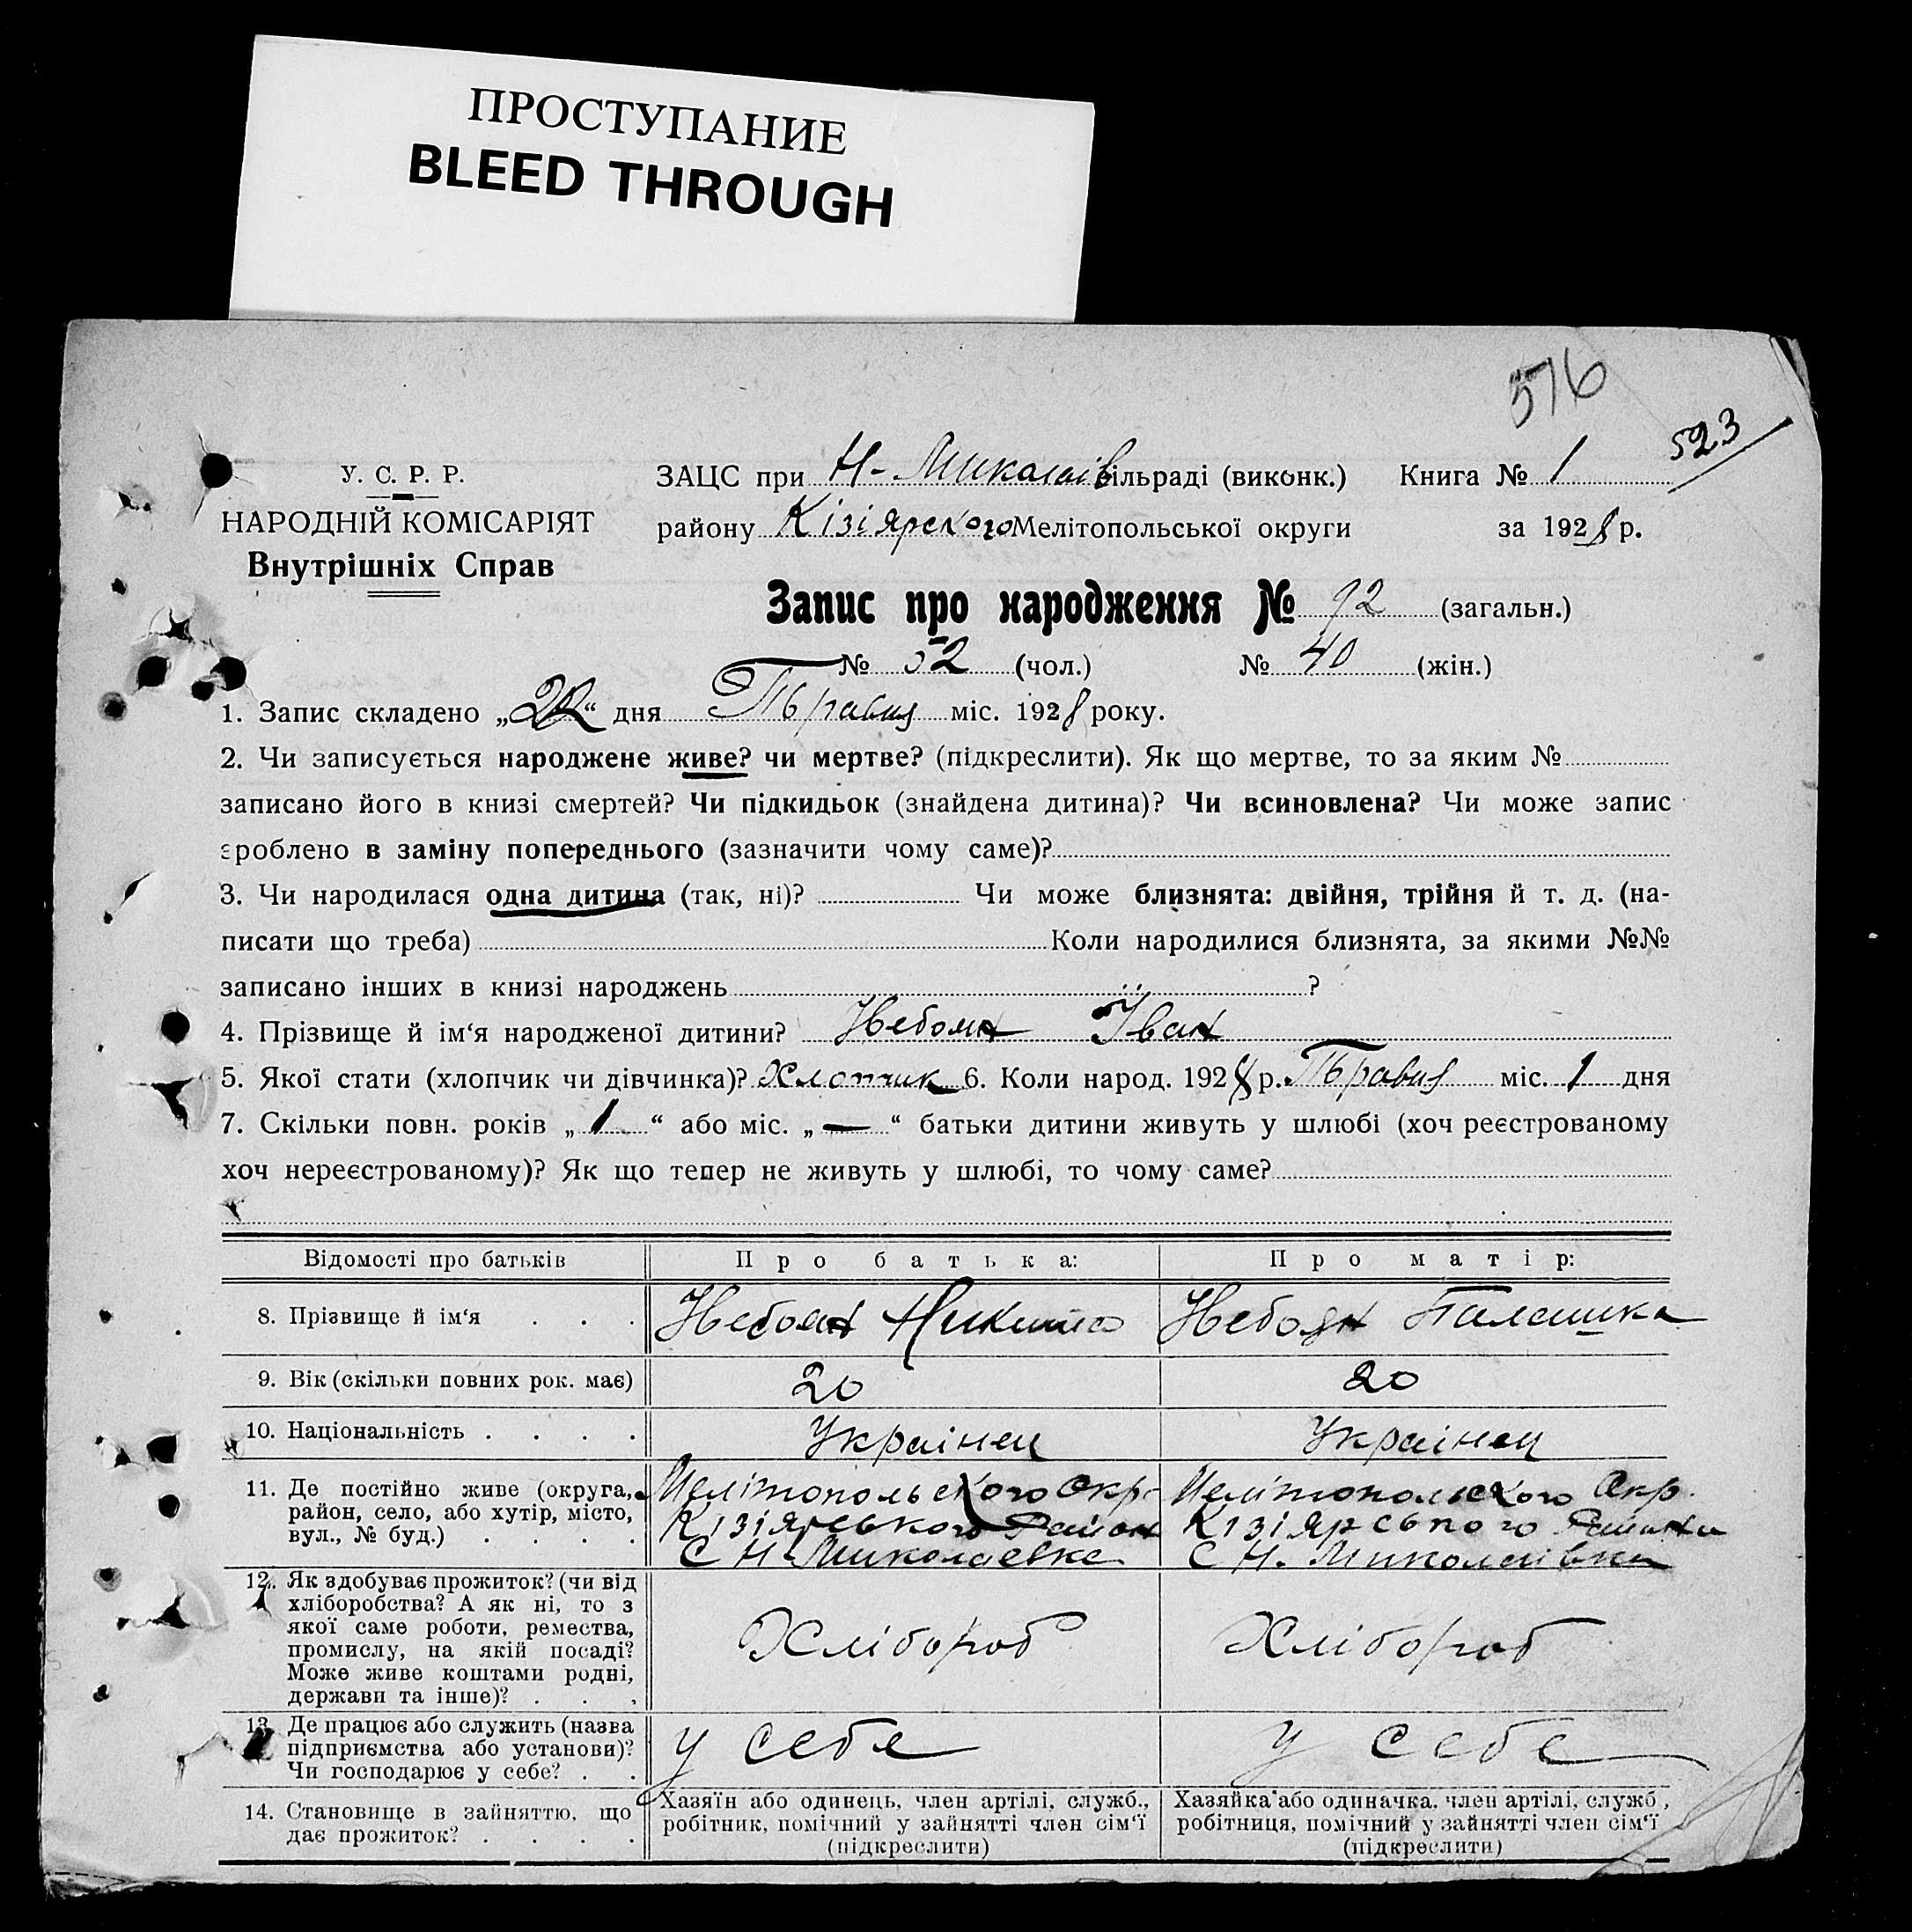 ПРОСТУПАНИЕ
BLEED THROUGH
516
523
У. С. Р. Р.
НАРОДНІЙ КОМІСАРІЯТ
Внутрішніх Справ
ЗАЦС при Н-Миколаїв сільраді (виконк.) Книга № 1
району Кізіярского Мелітопольської округи за 1928 р.
Запис про народження № 92 (загальн.)
№ 52 (чол.) № 40 (жін.)
1. Запис складено „ “ дня Травня міс. 1928 року.
2. Чи записується народжене живе? чи мертве? (підкреслити). Як що мертве, то за яким №
записано його в книзі смертей? Чи підкидьок (знайдена дитина)? Чи всиновлена? Чи може запис
зроблено в заміну попереднього (зазначити чому саме)?
3. Чи народилася одна дитина (так, ні)? Чи може близнята: двійня, трійня й т. д. (на-
писати що треба) Коли народилися близнята, за якими №№
записано інших в книзі народжень ?
4. Прізвище й ім‘я народженої дитини? Небоян Іван
5. Якої стати (хлопчик чи дівчинка)? Хлопчик 6. Коли народ. 1928 р. Травня міс. 1 дня
7. Скільки повн. років „ 1 “ або міс. „ — “ батьки дитини живуть у шлюбі (хоч реєстрованому
хоч нереєстрованому)? Як що тепер не живуть у шлюбі, то чому саме?
Відомості про батьків Про батька: Про матір:
8. Прізвище й ім‘я Небоян Никита Небоян Палашка
9. Вік (скільки повних рок. має) 20 20
10. Національність Українец Українец
11. Де постійно живе (округа, Мелітопольского Окр. Мелітопольского Окр.
район, село, або хутір, місто, Кізіярського Район Кізіярського Району
вул., № буд.) С Н-Миколаевке С Н. Миколаївка
12. Як здобуває прожиток? (чи від
хліборобства? А як ні, то з
якої саме роботи, ремества, Хлібороб Хлібороб
промислу, на якій посаді?
Може живе коштами родні,
держави та інше)?
13. Де працює або служить (назва
підприємства або установи)? у себе у себе
Чи господарює у себе?
14. Становище в зайняттю, що Хазяїн або одинець, член артілі, служб., Хазяйка або одиначка, член артілі, служб.,
дає прожиток? робітник, помічний у зайнятті член сім‘ї робітниця, помічний у зайнятті член сім‘ї
(підкреслити) (підкреслити)